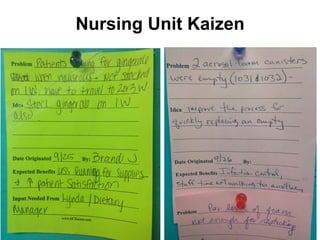 Nursing Unit Kaizen
Problem Patients asking for gingerale
when nauseous - Not stocked
on 1W, have to travel to 2 or 3 W
Idea Stock gingerale on 1W
also.
Date Originated 9/25 By: Brandi W
Expected Benefits Less Running for Supplies
+ ↑ patient Satisfaction
Input Needed From Hynda / Dietary
Manager
Problem 2 aerosol foam canisters
were empty (1031 & 1032) -
Idea Improve the process for
quickly replacing an empty
Date Originated 9/26 By:
Expected Benefits Infection Control,
Staff time not walking to another
Problem Par level of foam
not enough for restocking